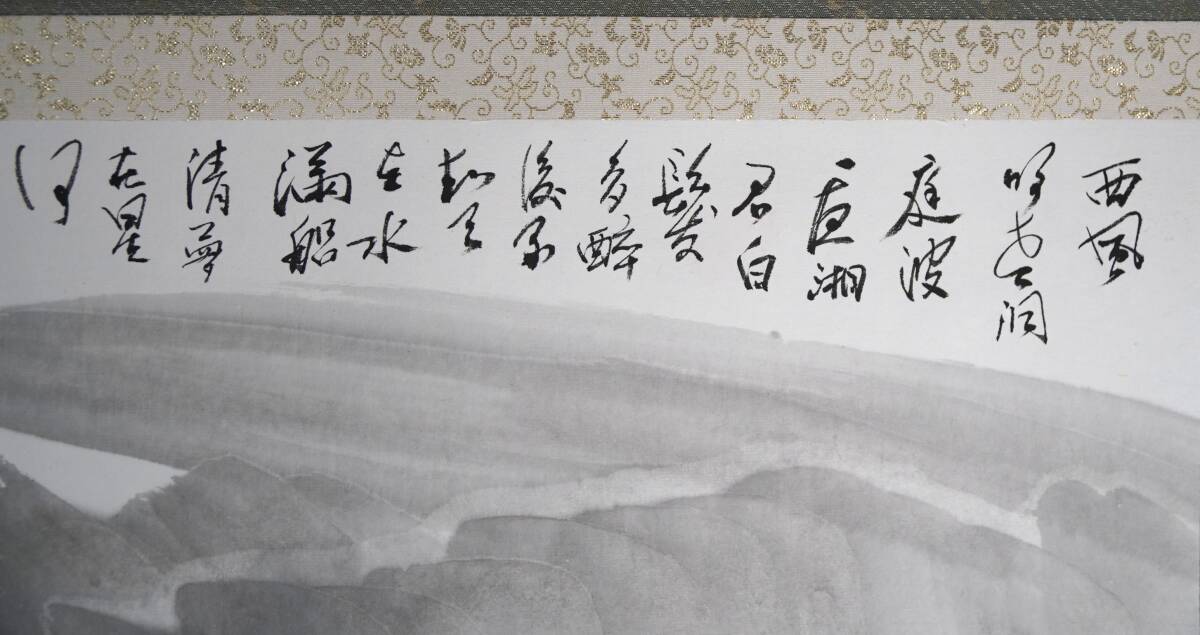 西風
吹老洞
庭波
一夜湘
君白
髮
多醉
後不
知天
在水
滿船
清夢
在星
河